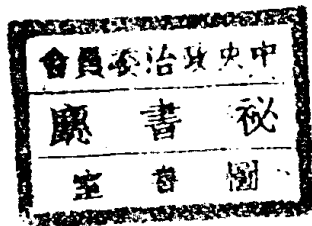 中央政治委員會
祕書廳
圖書室